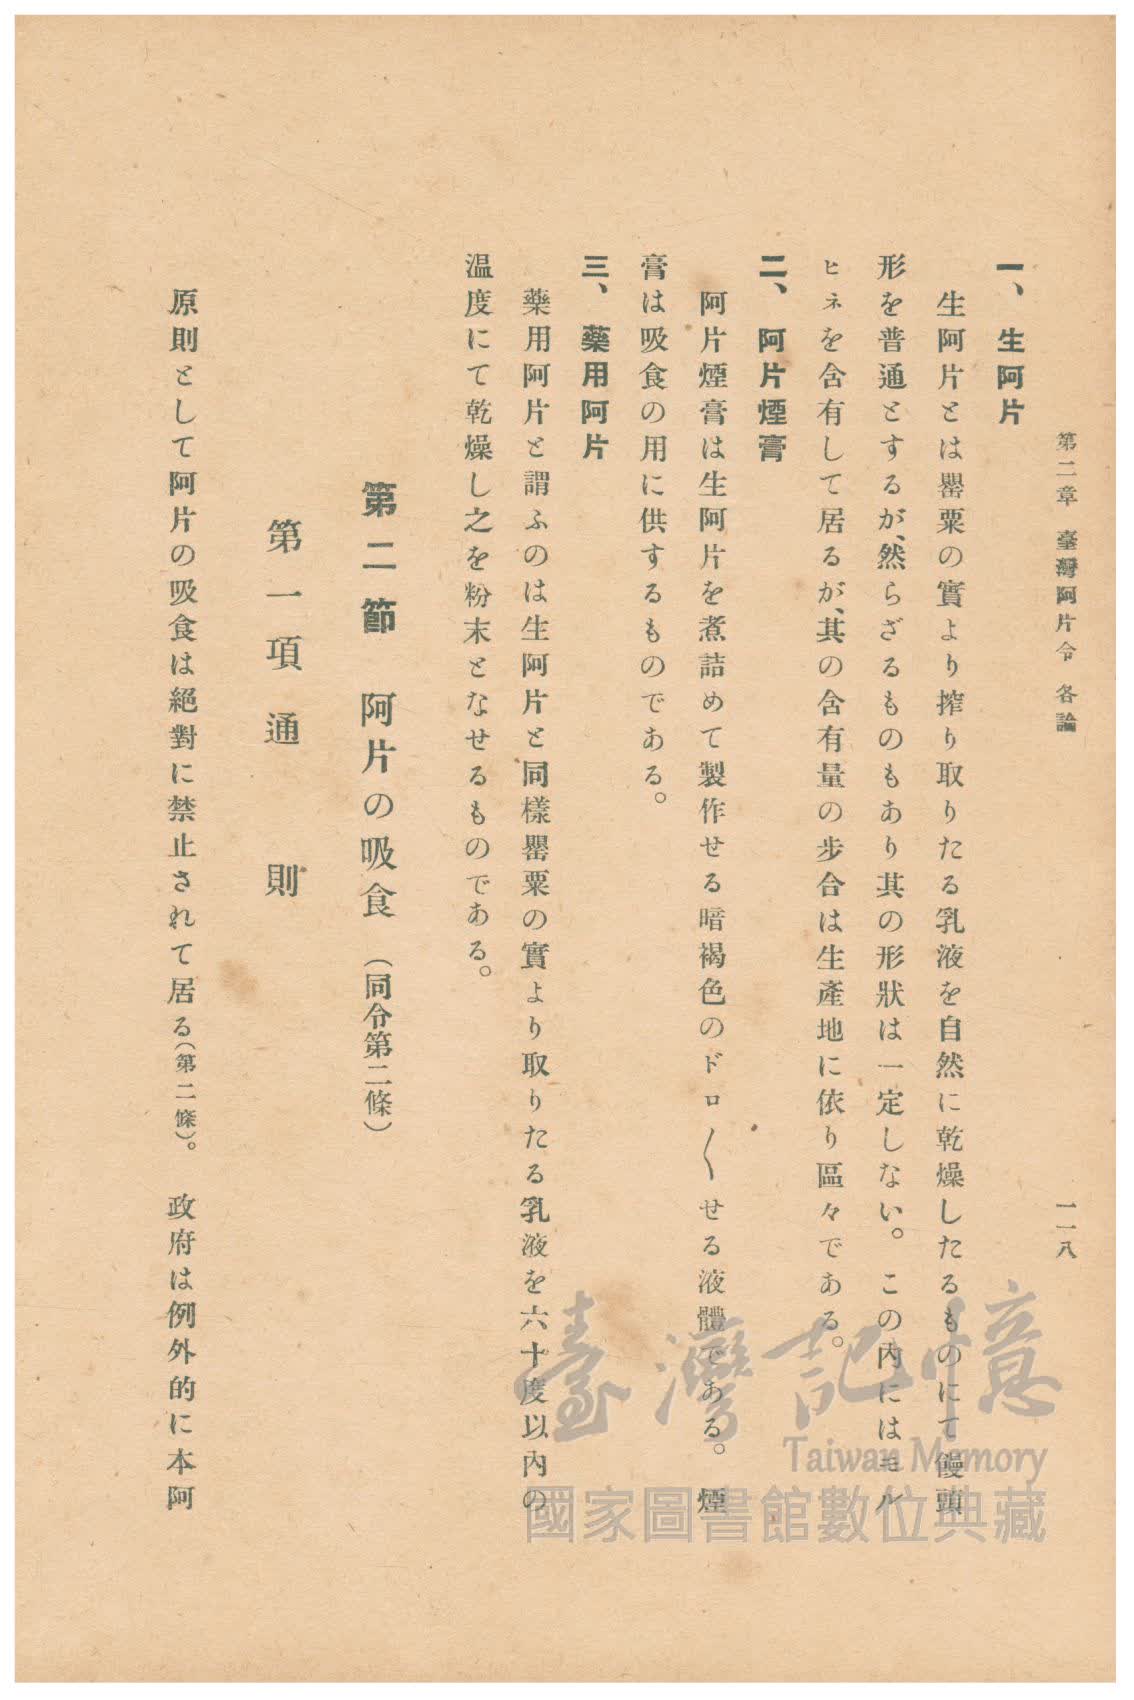 第二章　臺灣阿片令　各論　一一八
一、生阿片
生阿片とは罌粟の實より搾り取りたる乳液を自然に乾燥したるものにて饅頭
形を普通とするが、然らざるものもあり其の形狀は一定しない。この內にはモル
ヒネを含有して居るが、其の含有量の步合は生產地に依り區々である。
二、阿片煙膏
阿片煙膏は生阿片を煮詰めて製作せる暗褐色のドロ〱せる液體である。煙
膏は吸食の用に供するものである。
三、藥用阿片
藥用阿片と謂ふのは生阿片と同樣罌粟の實より取りたる乳液を六十度以內の
温度にて乾燥し之を粉末となせるものである。
第二節　阿片の吸食（同令第二條）
第一項　通則
原則として阿片の吸食は絕對に禁止されて居る（第二條）。　政府は例外的に本阿
臺灣記憶
Taiwan Memory
國家圖書館數位典藏